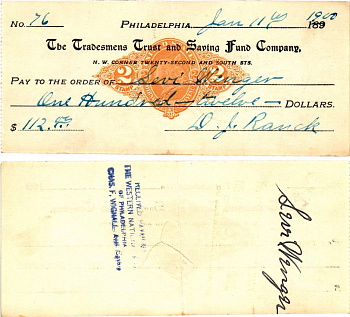 No. 76 Philadelphia, Jan 11th 1900
189
The Tradesmens Trust and Saving Fund Company,
N. W. CORNER TWENTY-SECOND AND SOUTH STS.
PAY TO THE ORDER OF Levi Wenger
One Hundred - twelve - DOLLARS.
2 2
STAMP STAMP
$ 112.00 D. J. Ranck
THE WESTERN NATIONAL
OF PHILADELPHIA
CHAS. F. WIGNALL, Asst. Cashier
Levi Wenger